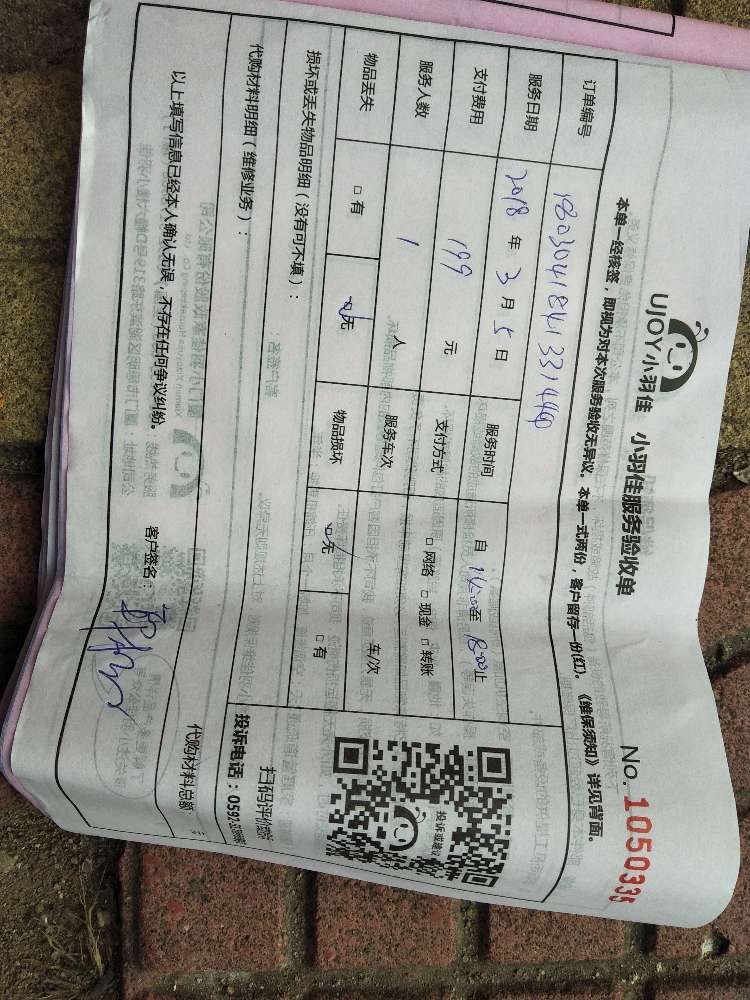 UJOY小羽佳 小羽佳服务验收单
No. 1050335
本单一经核签，即视为对本次服务验收无异议。本单一式两份，客户留存一份(红)。《维保须知》详见背面。
订单编号
服务日期 2018 年 3 月 5 日 服务时间 自 14:00至 18:00止
支付费用 199 元 支付方式 □ 网络 □ 现金 □ 转账
服务人数 1 人 服务车次 车/次
物品丢失 □ 有 □ 无 物品损坏 □ 无 □ 有
损坏或丢失物品明细（没有可不填）：
投诉或建议
扫码评价
代购材料明细（维修业务）：
投诉电话：0592-
代购材料总额：
以上填写信息已经本人确认无误，不存在任何争议纠纷。 客户签名：